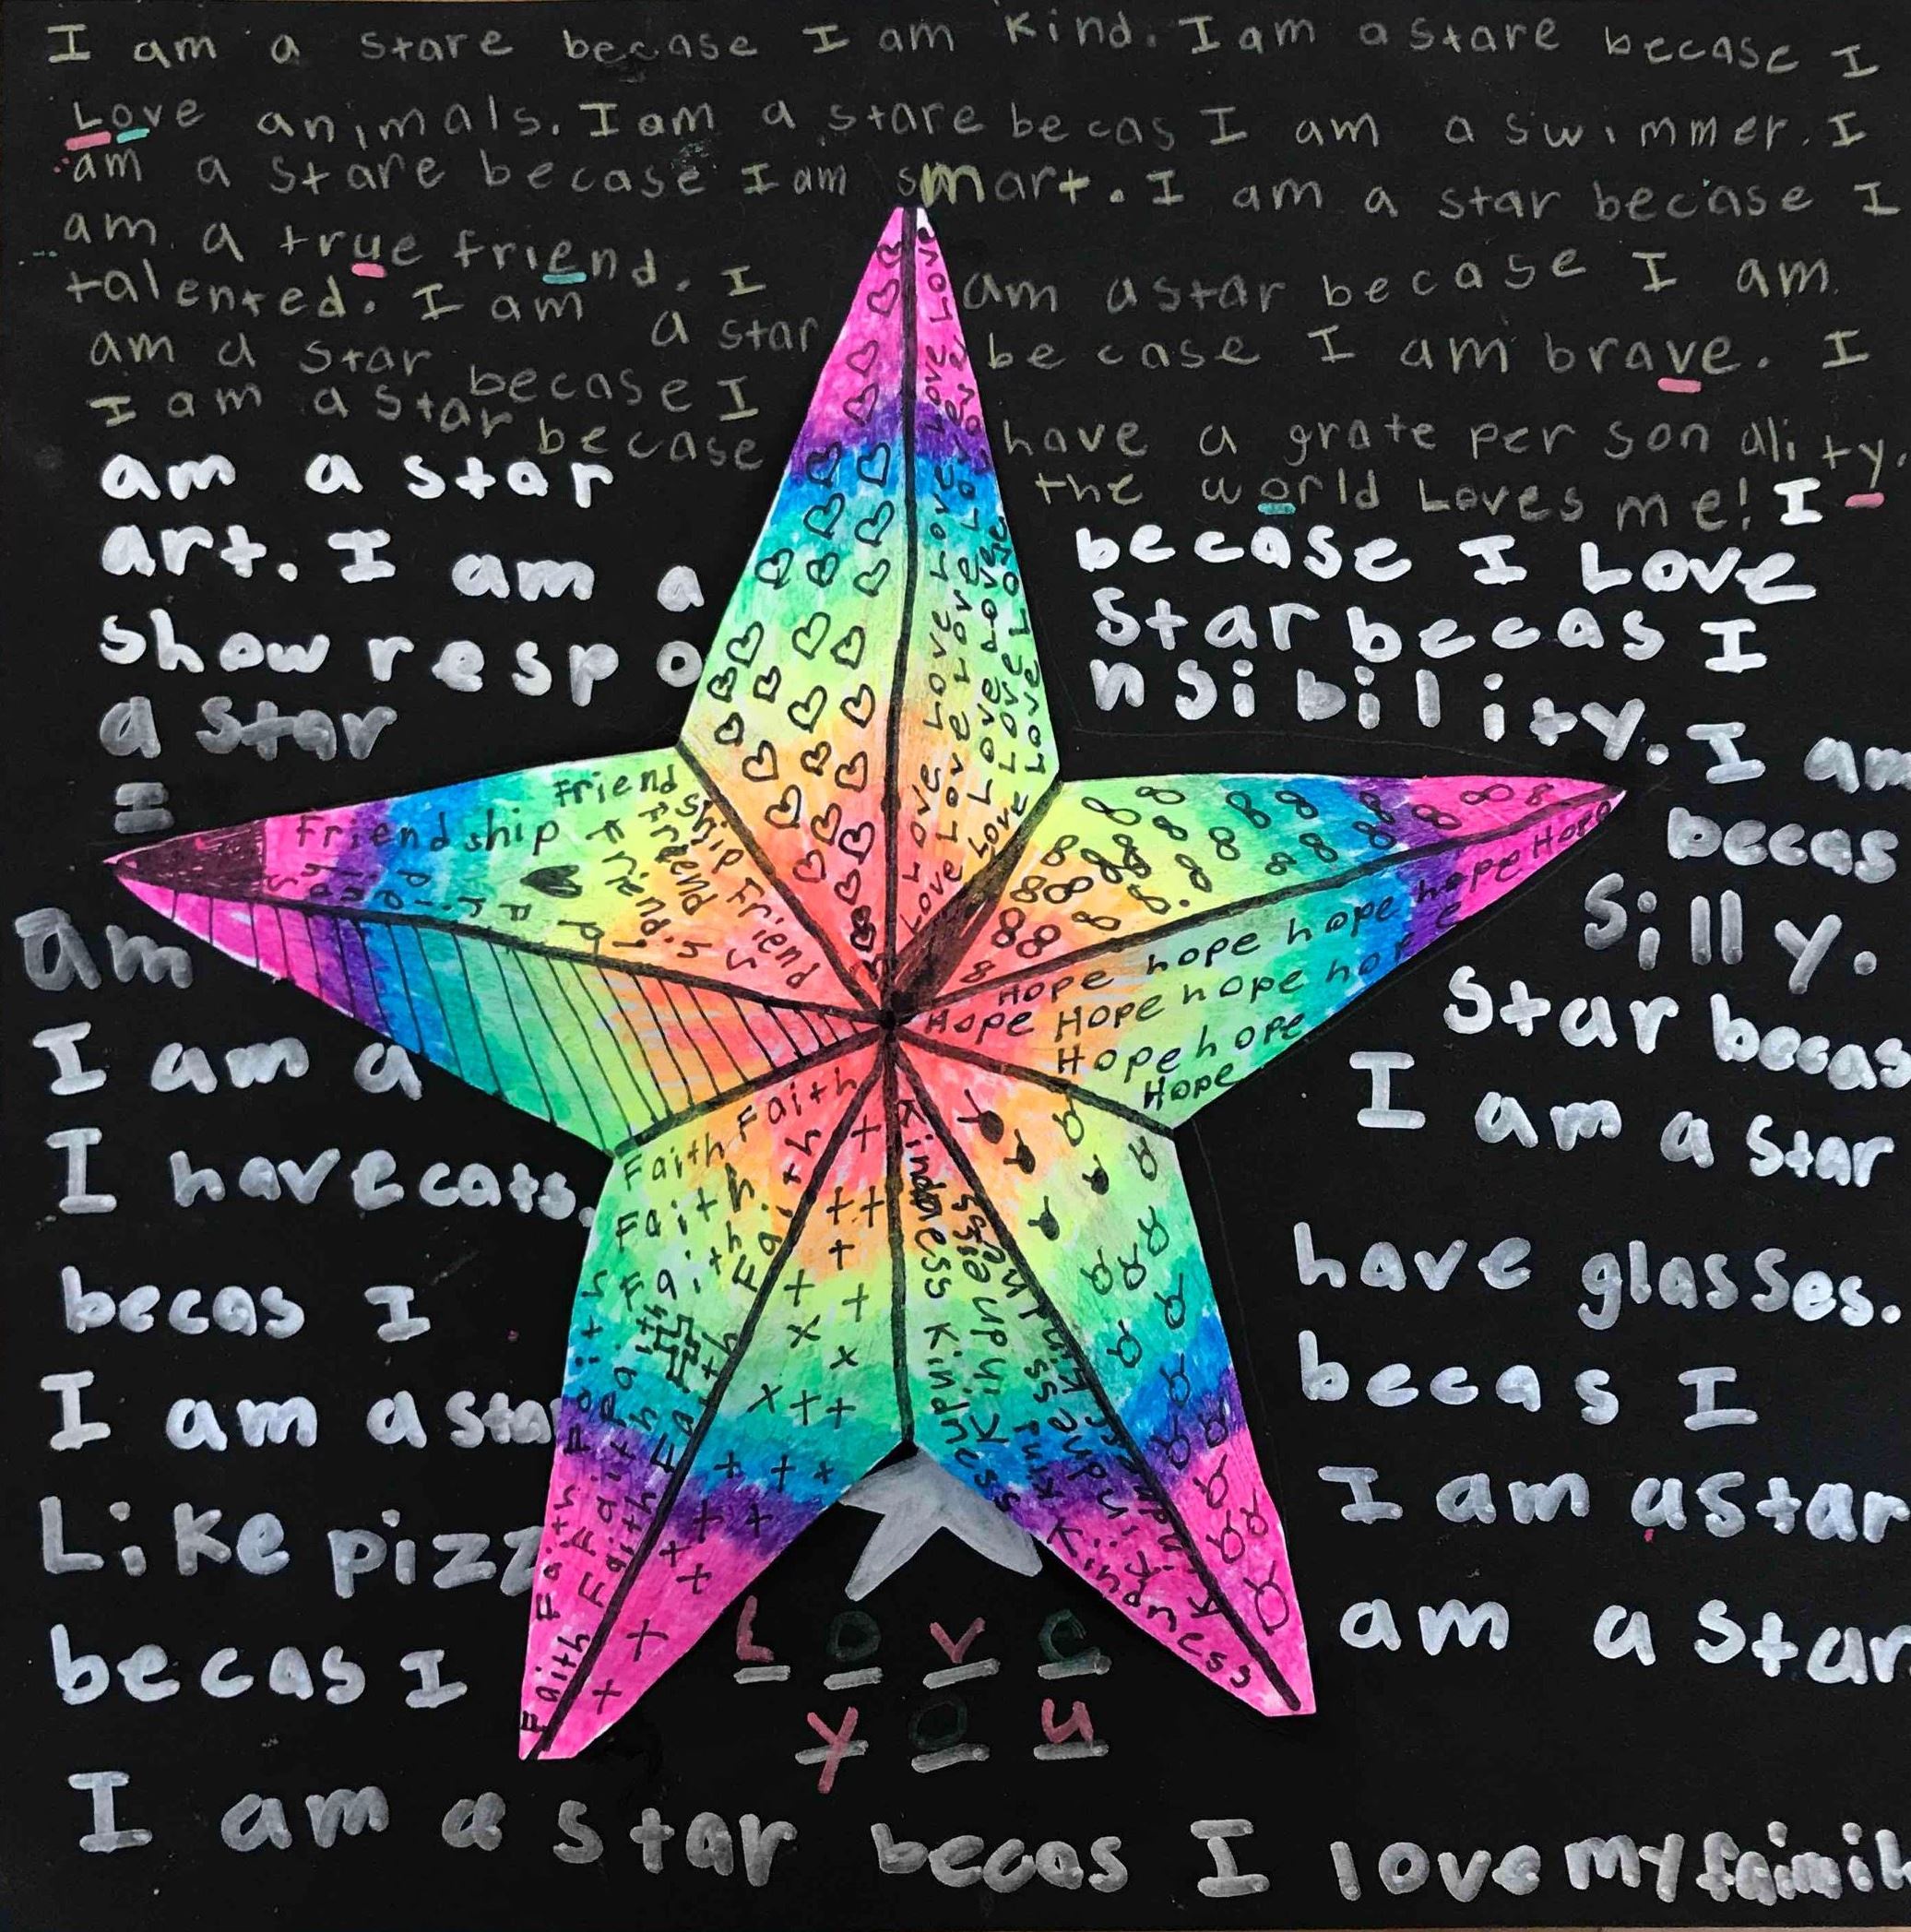 I am a stare becase I am kind. I am a stare becase I
Love animals. I am a stare becas I am a swimmer. I
am a stare becase I am smart. I am a star becase I
am a true friend. I am a star becase I am
talented. I am a star becase I am brave. I
am a star becase I have a grate personality.
I am a star becase the world Loves me! I
am a star becase I Love
art. I am a star becas I
show responsibility. I am
a star becas
I am silly.
I am a star becas
I have cats. I am a star
becas I have glasses.
I am a star becas I
Like pizz I am a star
becas I am a star
I am a star becas I love my faimil
Love Love Love Love Love
Love Love Love Love
Love Love Love Love
Love Love Love
Friendship Friend
Friendship Friend
Friendship Friend
hope hope hope hope Hope
Hope Hope hope hope hope
Hope hope
Hope
Faith Faith
Faith Faith
Faith Faith
Faith Faith Faith
Faith Faith Faith
Kindness Kindness
Kindness Kindness
Kindness Kindness
Love
you